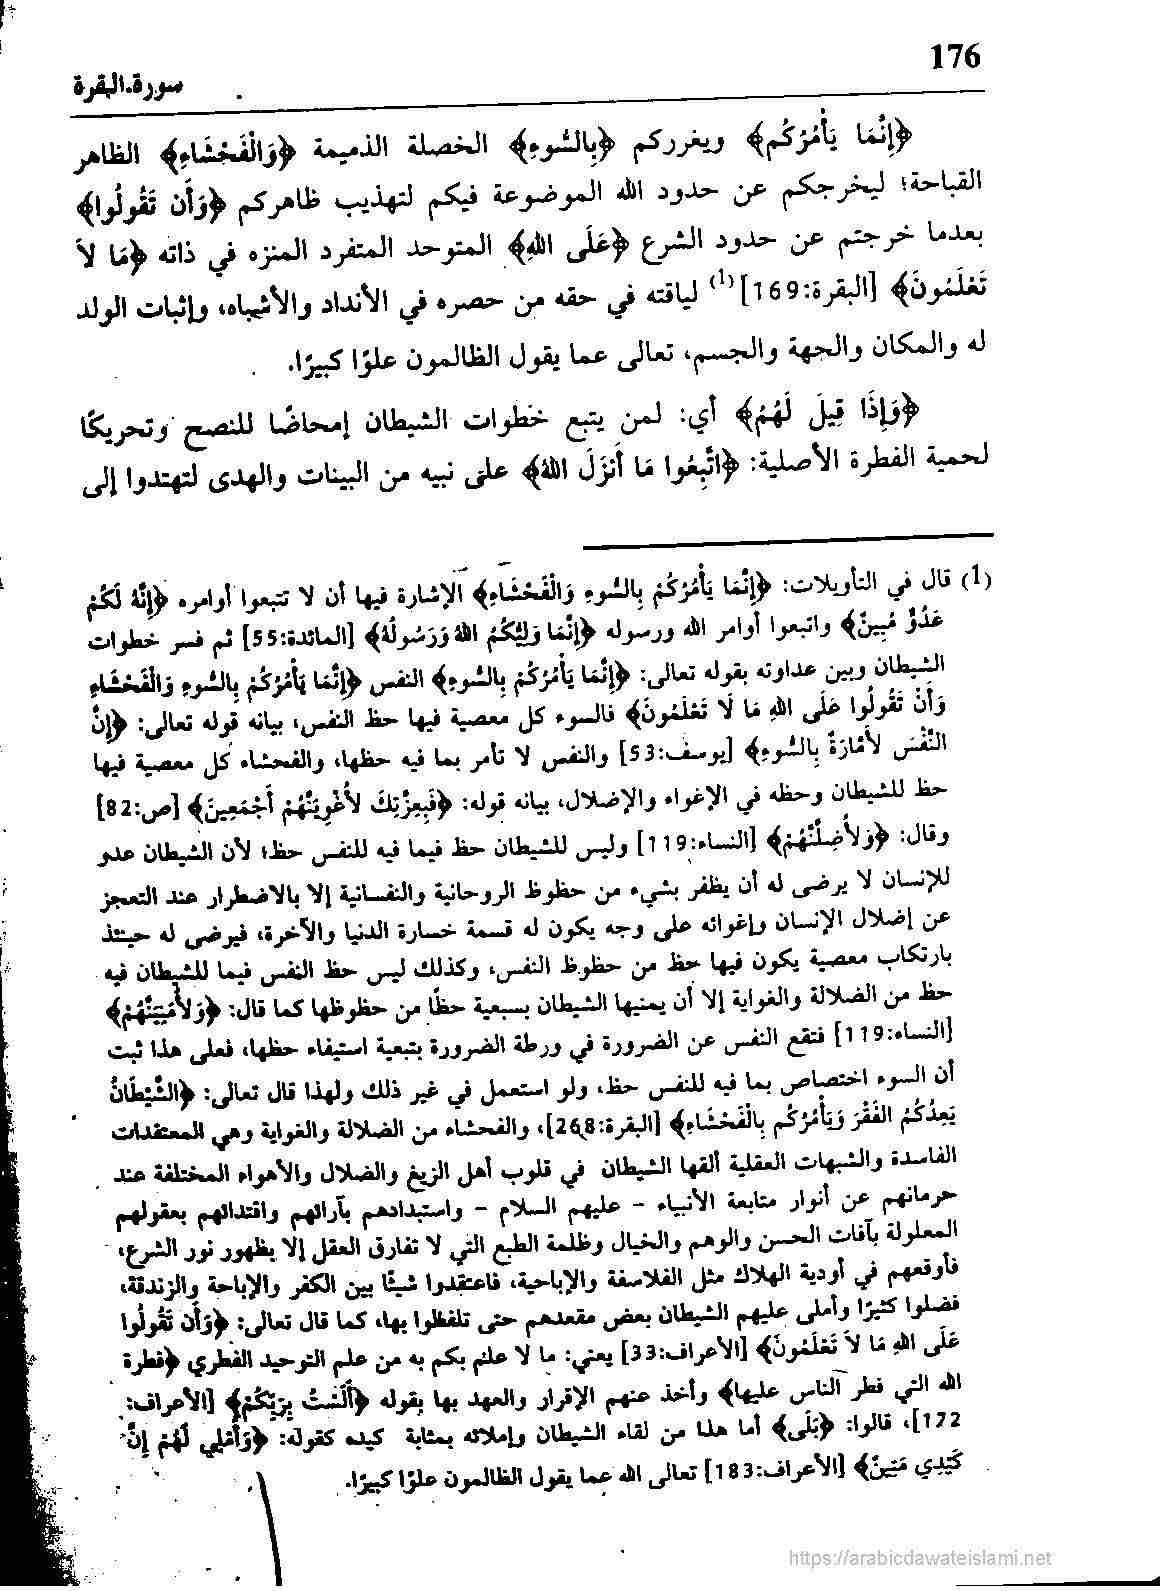 176
سورة البقرة
﴿إِنَّمَا يَأْمُرُكُم﴾ ويغرركم ﴿بِالسُّوءِ﴾ الخصلة الذميمة ﴿وَالْفَحْشَاءِ﴾ الظاهر
القباحة؛ ليخرجكم عن حدود الله الموضوعة فيكم لتهذيب ظاهركم ﴿وَأَن تَقُولُوا﴾
بعدما خرجتم عن حدود الشرع ﴿عَلَى اللهِ﴾ المتوحد المتفرد المنزه في ذاته ﴿مَا لاَ
تَعْلَمُونَ﴾ [البقرة:169] (1) لياقته في حقه من حصره في الأنداد والأشباه، وإثبات الولد
له والمكان والجهة والجسم، تعالى عما يقول الظالمون علوًا كبيرًا.
﴿وَإِذَا قِيلَ لَهُمُ﴾ أي: لمن يتبع خطوات الشيطان إمحاضًا للنصح وتحريكًا
لحمية الفطرة الأصلية: ﴿اتَّبِعُوا مَا أَنزَلَ اللهُ﴾ على نبيه من البينات والهدى لتهتدوا إلى
(1) قال في التأويلات: ﴿إِنَّمَا يَأْمُرُكُمْ بِالسُّوءِ وَالْفَحْشَاءِ﴾ الإشارة فيها أن لا تتبعوا أوامره ﴿إِنَّهُ لَكُمْ
عَدُوٌّ مُبِينٌ﴾ واتبعوا أوامر الله ورسوله ﴿إِنَّمَا وَلِيُّكُمُ اللهُ وَرَسُولُهُ﴾ [المائدة:55] ثم فسر خطوات
الشيطان وبين عداوته بقوله تعالى: ﴿إِنَّمَا يَأْمُرُكُمْ بِالسُّوءِ﴾ النفس ﴿إِنَّمَا يَأْمُرُكُمْ بِالسُّوءِ وَالْفَحْشَاءِ
وَأَنْ تَقُولُوا عَلَى اللهِ مَا لَا تَعْلَمُونَ﴾ فالسوء كل معصية فيها حظ النفس، بيانه قوله تعالى: ﴿إِنَّ
النَّفْسَ لأَمَّارَةٌ بِالسُّوءِ﴾ [يوسف:53] والنفس لا تأمر بما فيه حظها، والفحشاء كل معصية فيها
حظ للشيطان وحظه في الإغواء والإضلال، بيانه قوله: ﴿فَبِعِزَّتِكَ لأُغْوِيَنَّهُمْ أَجْمَعِينَ﴾ [ص:82]
وقال: ﴿وَلأُضِلَّنَّهُمْ﴾ [النساء:119] وليس للشيطان حظ فيما فيه للنفس حظ؛ لأن الشيطان عدو
للإنسان لا يرضى له أن يظفر بشيء من حظوظ الروحانية والنفسانية إلا بالاضطرار عند التعجز
عن إضلال الإنسان وإغوائه على وجه يكون له قسمة خسارة الدنيا والآخرة، فيرضى له حينئذ
بارتكاب معصية يكون فيها حظ من حظوظ النفس، وكذلك ليس حظ النفس فيما للشيطان فيه
حظ من الضلالة والغواية إلا أن يمنيها الشيطان بسبعية حظًا من حظوظها كما قال: ﴿وَلأُمَنِّيَنَّهُمْ﴾
[النساء:119] فتقع النفس عن الضرورة في ورطة الضرورة بتبعية استيفاء حظها، فعلى هذا ثبت
أن السوء اختصاص بما فيه للنفس حظ، ولو استعمل في غير ذلك ولهذا قال تعالى: ﴿الشَّيْطَانُ
يَعِدُكُمُ الفَقْرَ وَيَأْمُرُكُم بِالْفَحْشَاءِ﴾ [البقرة:268]، والفحشاء من الضلالة والغواية وهي المعتقدات
الفاسدة والشبهات العقلية ألقها الشيطان في قلوب أهل الزيغ والضلال والأهواء المختلفة عند
حرمانهم عن أنوار متابعة الأنبياء - عليهم السلام - واستبدادهم بآرائهم واقتدائهم بعقولهم
المعلولة بآفات الحسن والوهم والخيال وظلمة الطبع التي لا تفارق العقل إلا بظهور نور الشرع،
فأوقعهم في أودية الهلاك مثل الفلاسفة والإباحية، فاعتقدوا شيئًا بين الكفر والإباحة والزندقة،
فضلوا كثيرًا وأملى عليهم الشيطان بعض مقعدهم حتى تلفظوا بها، كما قال تعالى: ﴿وَأَن تَقُولُوا
عَلَى اللهِ مَا لاَ تَعْلَمُونَ﴾ [الأعراف:33] يعني: ما لا علم بكم به من علم التوحيد الفطري ﴿فطرة
الله التي فطر الناس عليها﴾ وأخذ عنهم الإقرار والعهد بها بقوله ﴿أَلَسْتُ بِرَبِّكُمْ﴾ [الأعراف:
172]، قالوا: ﴿بَلَى﴾ أما هذا من لقاء الشيطان وإملائه بمثابة كيده كقوله: ﴿وَأُمْلِي لَهُمْ إِنَّ
كَيْدِي مَتِينٌ﴾ [الأعراف:183] تعالى الله عما يقول الظالمون علوًا كبيرًا.
https://arabicdawateislami.net